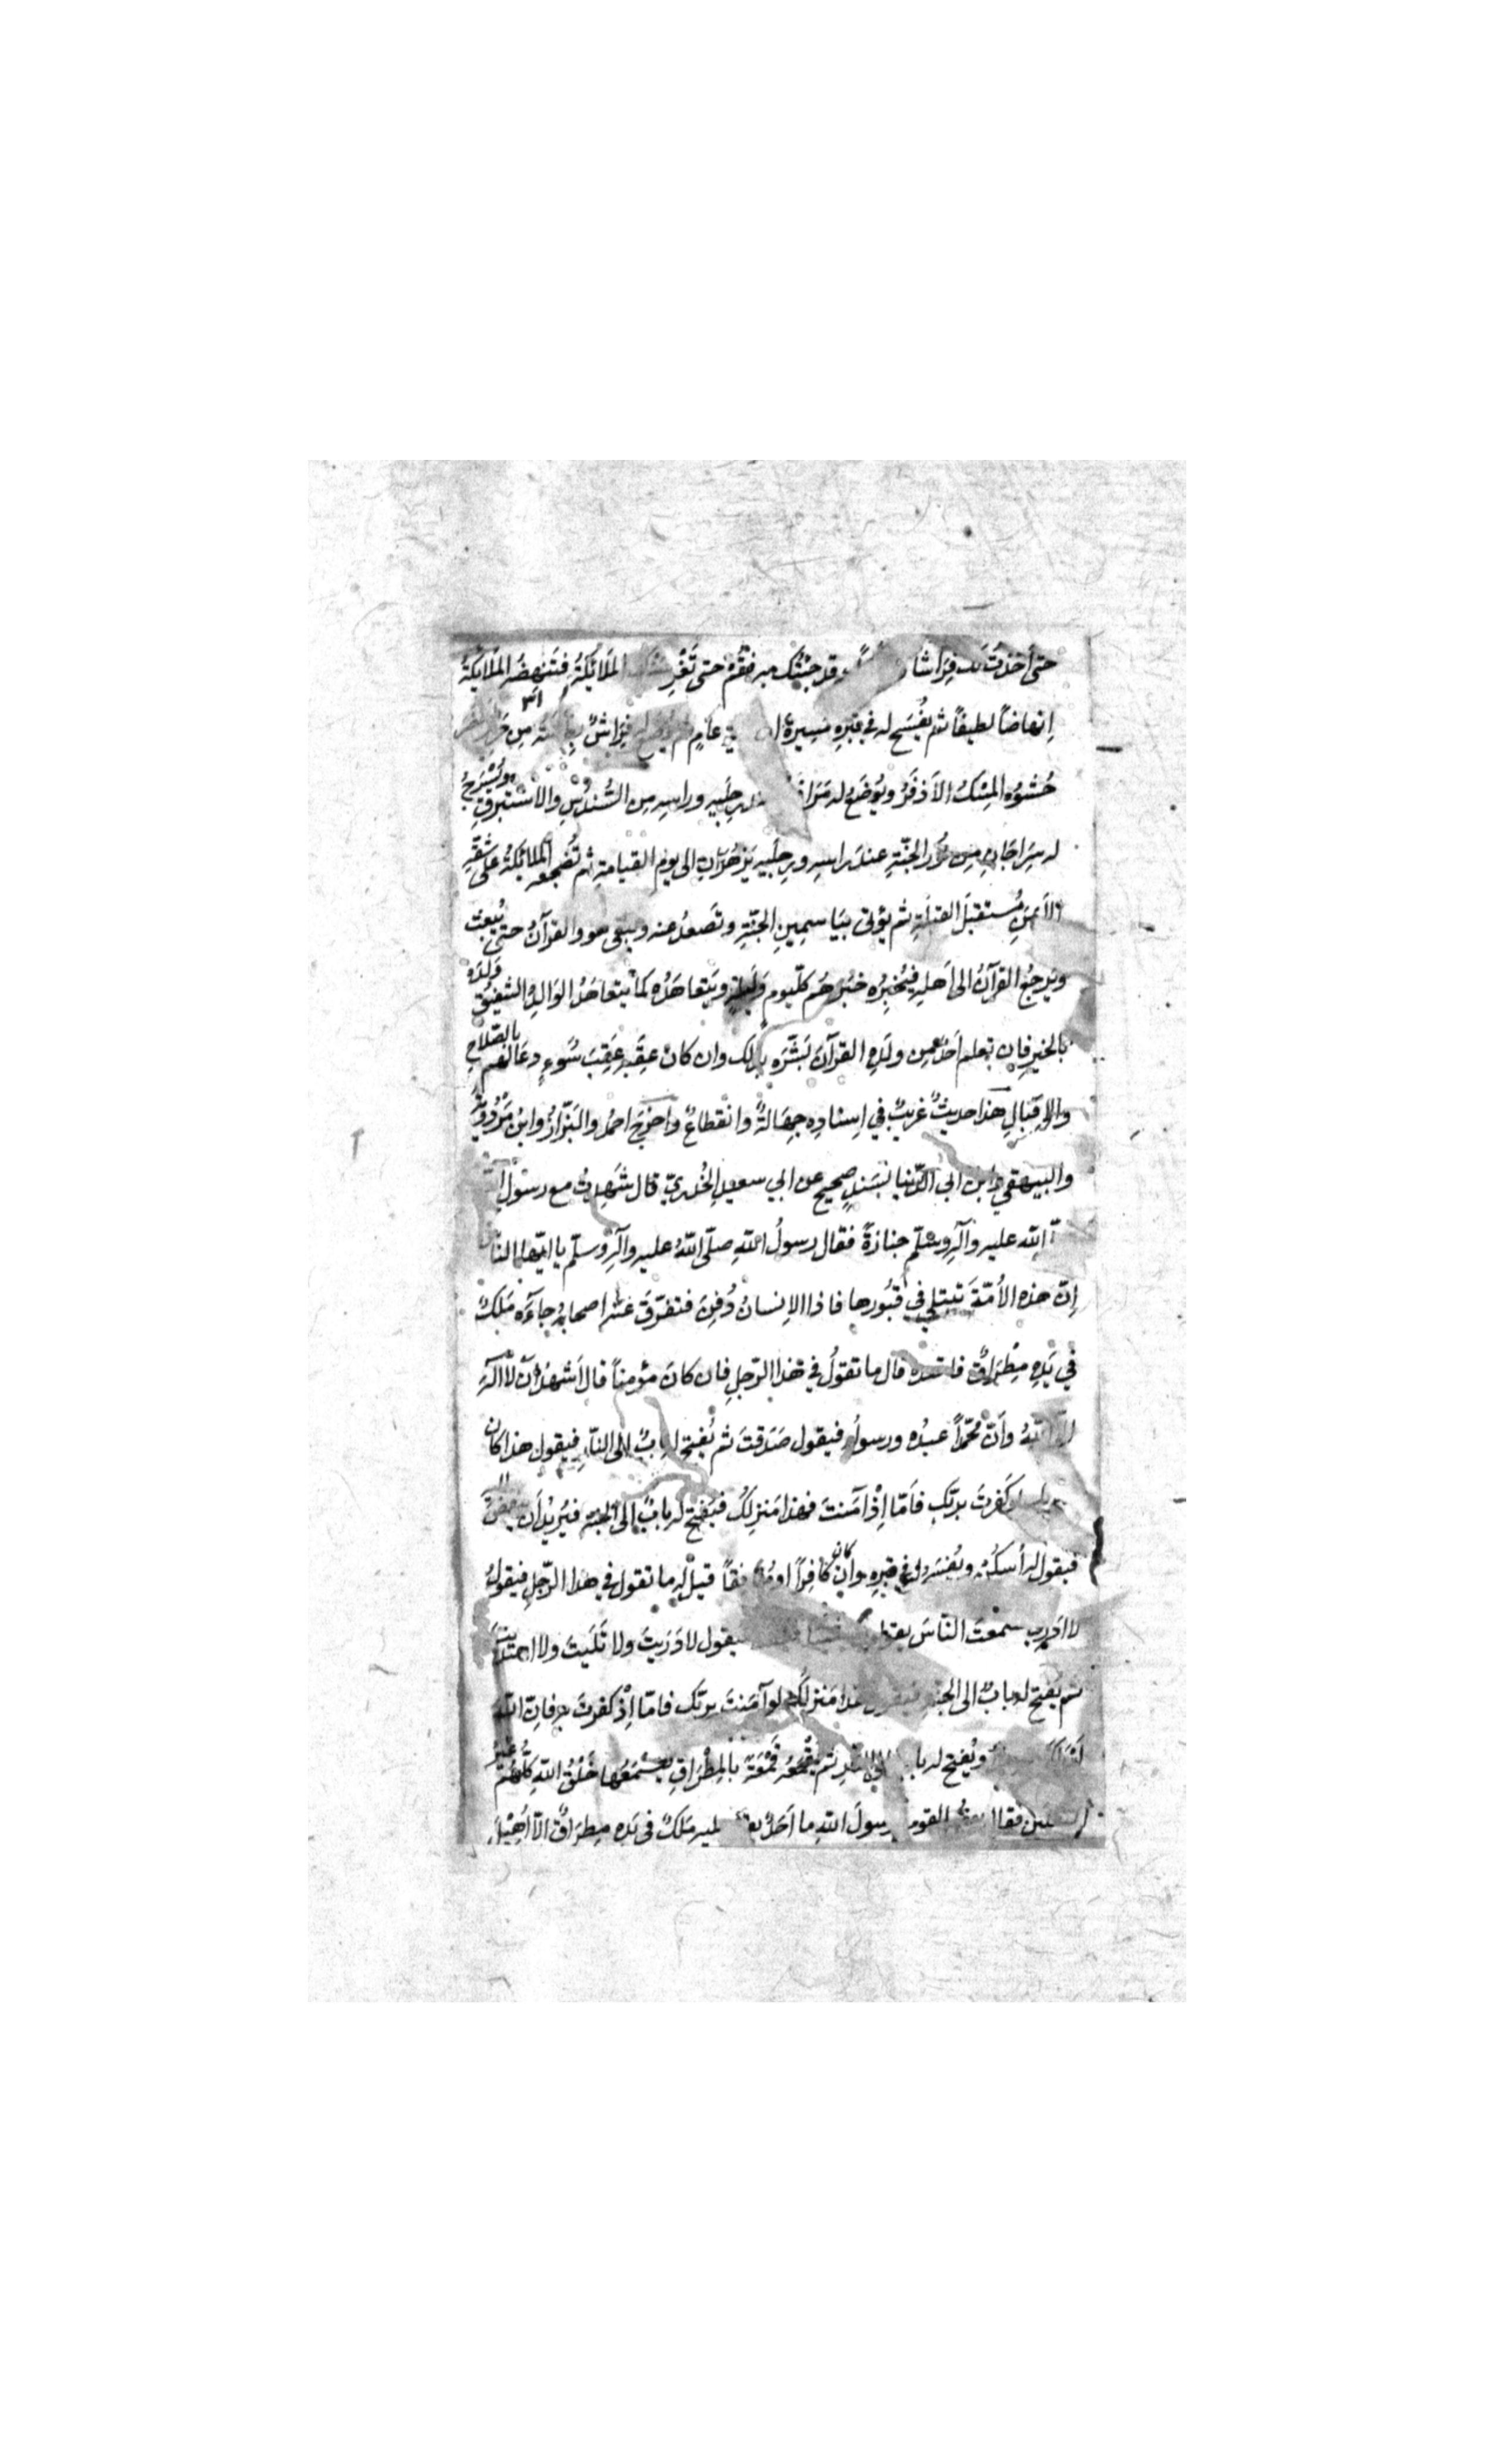 حتى أخَذتُ لك فِرَاشاً قد جِئتُك به فقُم حتى تَفرِشَك المَلَائِكَةُ فتُنهِضُه المَلَائِكَةُ
اِنهاضاً لطيفاً ثم يُفسَح له في قبرِه مَسِيرةَ عامٍ ثم يُوضَع له فِرَاشٌ مِن
حُشوُه المِسْكُ الأَذفَرُ ويُوضَع له مَرَافِق عند رِجلَيهِ وراسِه مِن السُّندُسِ والاستَبرقِ ويُسْرَجُ
له سِرَاجَانِ مِن نُور الجنّةِ عندَ راسِه ورِجلَيه يَزهَرَانِ الى يوم القيامةِ ثم تُضجِعه الملائكةُ على شقِّه
الأَيمَنِ مُستقبَلَ القبلَةِ ثم يؤتى بيَاسمِينِ الجنّةِ وتَصعَدُ عنه ويبقى هو والقرآنُ حتى يُبعَث
ويَرجِعُ القرآنُ الى اَهلِه فيُخبِرُه خبَرَهُم كلّ يوم ولَيلةٍ ويَتعاهَدُه كما يَتعاهَدُ الوَالِدُ الشفيقُ وَلَدَه
بالخيرِ فإن تعلم أحدٌ مِن ولَدِه القرآنَ بَشَّرَه بذلك وان كان عَقِبُه عَقِبَ سُوءٍ دعَا لهم بالصَّلاحِ
والاِقبَالِ هذا حديثٌ غريبٌ في اِسنادِه جِهَالةٌ وانقطاعٌ واخرَجَ احمدُ والبَزّارُ وابنُ مَرْدُوَيه
والبيهقي وابن ابي الدّنيا بسَندٍ صحيح عن ابي سعيدٍ الخُدريّ قال شَهِدتُ مع رسولِ
الله عليه وآلِه وسلّم جنازةً فقال رسولُ اللهِ صلّى اللّهُ عليه وآلِه وسلّم يا ايّها النّاس
اِنّ هذه الأُمّةَ تبتلي في قبُورها فاذا الاِنسانُ دُفِنَ فتفرّقَ عنه اصحابُه جاءَه مَلَكٌ
في يَدِه مِطْرَاقٌ فاقعده قال ما تقولُ في هذا الرّجلِ فان كانَ مؤمِناً قال اَشهدُ اَن لا اله
الّا اللّهُ وأَنّ مُحمّداً عبدُه ورسولُه فيقول صَدَقتَ ثم يُفتح له بابٌ الى النّارِ فيقول هذا كان
كَفرتَ بربّك فاَمّا اِذْ آمَنتَ فهذا مَنزِلُك فيُفتح له بابٌ الى الجنّةِ فيُرِيدُ اَن ينهضَ
فيقول له اُسكُن ويُفسَح له في قبرِه وان كان كافِراً او منافقاً قيل له ما تقول في هذا الرّجلِ فيقولُ
لا ادري سمعتُ النّاسَ يقولون شيئاً فيقول لا دَرَيتَ ولا تَلَيتَ ولا اهتَدَيتَ
ثم يُفتح له بابٌ الى الجنّةِ فيقول هذا مَنزلُك لو آمَنتَ بربّك فامّا اِذْ كفرتَ به فاِنّ اللّهَ
ويُفتح له باب الى النارِ ثم يَقمَعُه قَمْعَةً بالمِطْرَاقِ يَسْمَعُها خَلْقُ اللّهِ كلُّهُم غيرُ
الثقلين فقال بعضُ القوم يا رسولَ اللهِ ما اَحَدٌ يقوم عليه مَلَكٌ في يَدِه مِطرَاقٌ الّا اُهِيْلَ